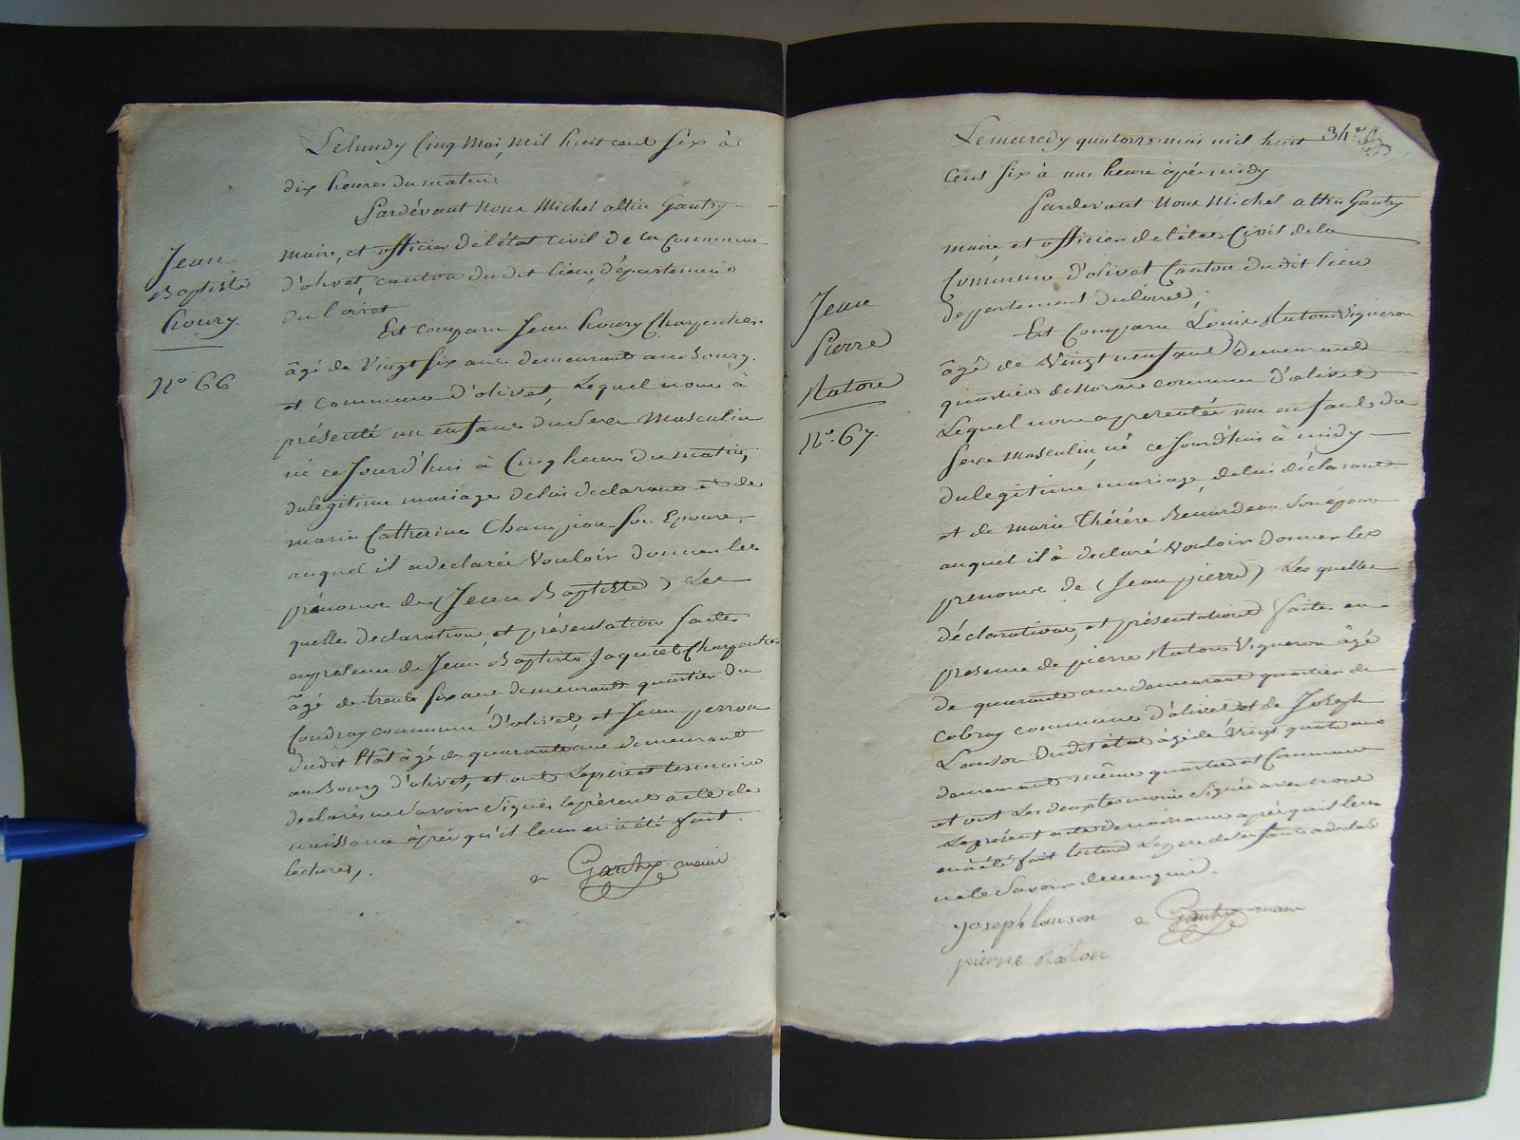 Le lundy Cinq Mai, Mil huit cent Six à
dix heures du matin
Pardevant nous Michel altin Gautry
Jean
Baptiste
houry
N° 66
maire, et officier de l'état Civil de la Commune
d'olivet, canton du dit lieu, département
du Loiret
Est comparu Jean houry Charpentier
âgé de Vingt Six ans demeurant au Bourg
et commune d'olivet, Lequel nous à
présenté un enfant du Sexe Masculin
né ce Jourd'hui à Cinq heures du matin,
du légitime mariage de lui déclarant et de
marie Catherine Champion Son Epouse,
auquel il a déclaré Vouloir donner les
prénoms de (Jean Baptiste) Les
quelles declaration, et présentation faites
en présence de Jean Baptiste Jaquet Charpentier
âgé de trente Six ans demeurant quartier du
Coudray commune d'olivet, et Jean perron
dudit Etat âgé de quarante ans demeurant
au Bourg d'olivet, et ont Le père et témoins
declarés ne Savoir Signer le présent acte de
naissance après qu'il leur en a été fait
lecture.
Gautry maire
34e
Le mercredy quatorze mai mil huit
cent Six à une heure après midy
Pardevant nous Michel altin Gautry
Jean
Pierre
N°. 67.
maire, et officier de l'état Civil de la
Commune d'olivet Canton dudit lieu
departement du Loiret,
Est Comparu Louis Vigneron
âgé de Vingt neuf ans demeurant
quartier commune d'olivet
Lequel nous a presenté un enfant du
Sexe masculin, né ce Jourd'hui à midy
du légitime mariage de lui déclarant
et de marie thérése Son epouse
auquel il à declaré Vouloir donner les
prenoms de (Jean pierre) Les quelles
déclaration, et présentation faites en
presence de pierre Vigneron âgé
de quarante ans demeurant quartier de
commune d'olivet et de Joseph
Lanson dudit état âgé de Vingt quatre ans
demeurant même quartier et Commune
et ont Les deux témoins Signé avec nous
Le présent acte de naissance après qu'il leur
en a été fait lecture Le père de l'enfant a déclaré
ne le Savoir
Joseph lanson
Gautry maire
pierre